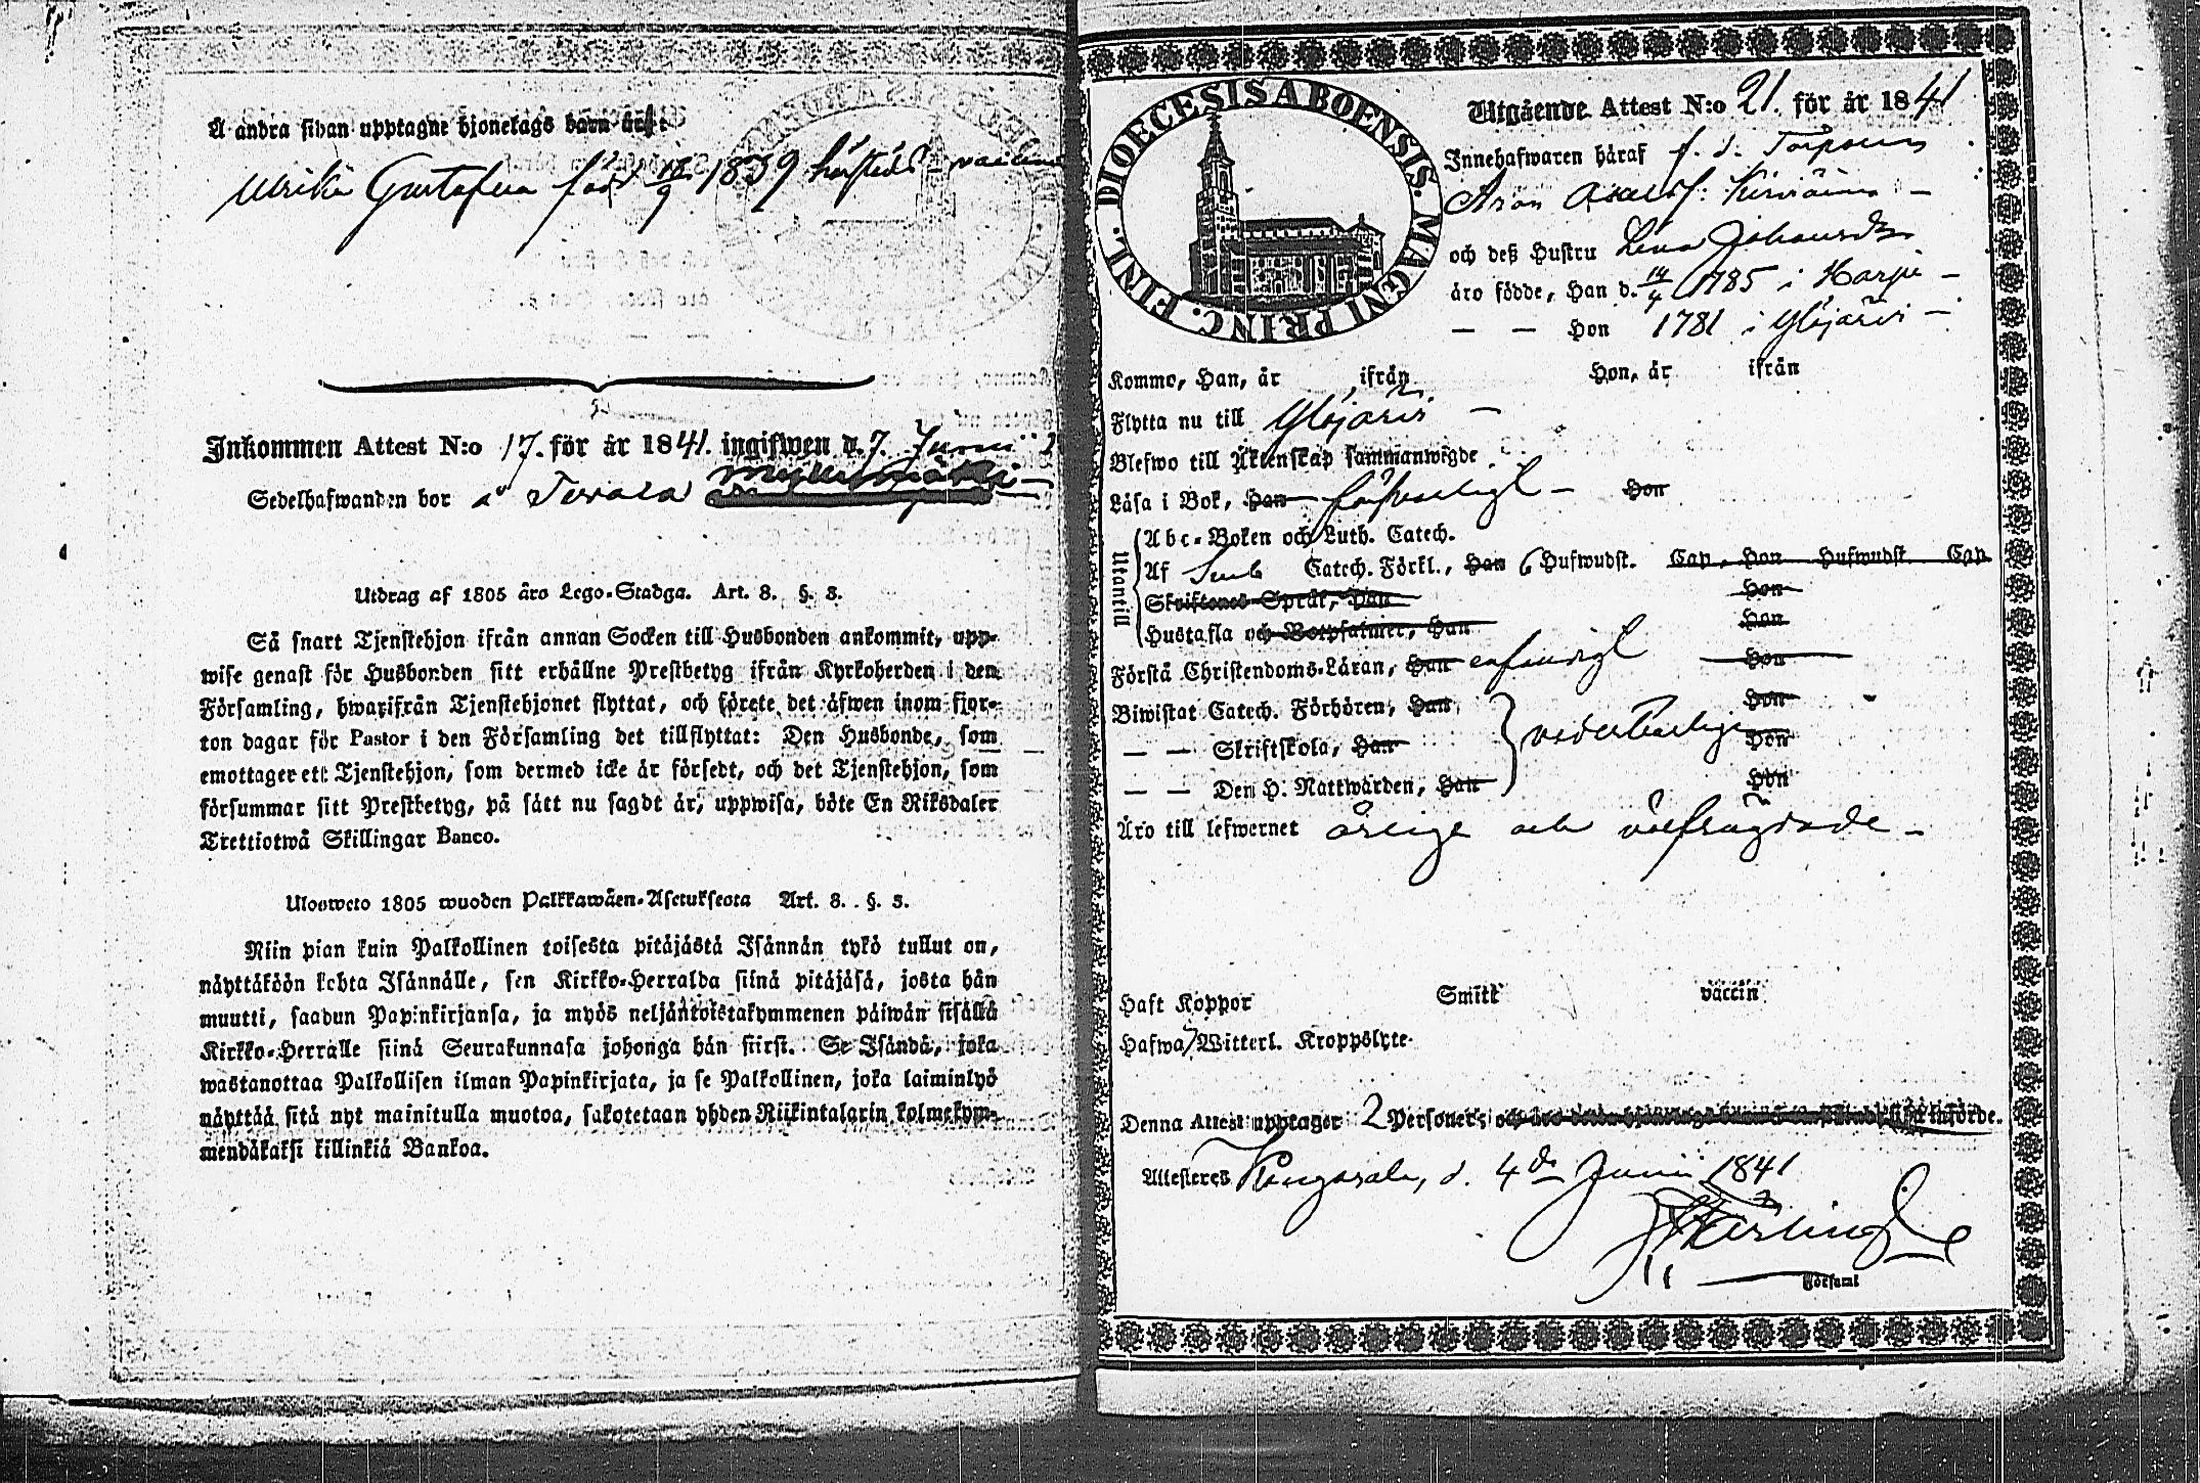 Å andra sidan upptagne hjonelags barn äro:
Ulrika Gustafva född 1839
Inkommen Attest N:o 17. för år 1841. ingifwen d. 7. Junii
Sedelhafwanden bor å
Utdrag af 1805 års Lego-Stadga. Art. 8. §. 3.
Så snart Tjenstehjon ifrån annan Socken till Husbonden ankommit, upp-
wise genast för Husbonden sitt erhållne Prestbetyg ifrån Kyrkoherden i den
Församling, hwarifrån Tjenstehjonet flyttat, och förete det äfwen inom fjor-
ton dagar för Pastor i den Församling det tillflyttat: Den Husbonde, som
emottager ett Tjenstehjon, som dermed icke är försedt, och det Tjenstehjon, som
försummar sitt Prestbetyg, på sätt nu sagdt är, uppwisa, böte En Riksdaler
Trettiotwå Skillingar Banco.
Ulosweto 1805 wuoden Palkkawäen-Asetuksesta Art. 8. §. 3.
Niin pian kuin Palkollinen toisesta pitäjästä Isännän tykö tullut on,
näyttäköön kohta Isännälle, sen Kirkko-Herralda siinä pitäjäsä, josta hän
muutti, saadun Papinkirjansa, ja myös neljäntoistakymmenen päiwän sisällä
Kirkko-Herralle siinä Seurakunnasa johonga hän siirsi. Se Isändä, joka
wastanottaa Palkollisen ilman Papinkirjata, ja se Palkollinen, joka laiminlyö
näyttää sitä nyt mainitulla muotoa, sakotetaan yhden Riikintalarin kolmekym-
mendäkaksi killinkiä Bankoa.
DIOECESIS ABOENSIS. MAGNI PRINC. FINL.
Utgående Attest N:o 21. för år 1841
Innehafwaren häraf f. d. Torparen
Aron Axelsf:
och deß Hustru Lena Johansdr
äro födde, Han d. 14/4 1785 i Harju
— — Hon 1781 i Ylöjärvi
Kommo, Han, år ifrån Hon, år ifrån
Flytta nu till Ylöjärvi
Blefwo till Äktenskap sammanwigde
Läsa i Bok, Han försvarligt Hon
Utantill
Abc-Boken och Luth. Catech.
Af Catech. Förkl., Han 6 Hufwudst. Cap, Hon Hufwudst. Cap
Skriftenes Språk, Han Hon
Hustafla och Botpsalmer, Han Hon
Förstå Christendoms-Läran, Han enfaldigt Hon
Biwistat Catech. Förhören, Han Hon
— — Skriftskola, Han vederbörligen Hon
— — Den H. Nattwarden, Han Hon
Äro till lefwernet ärlige och välfrägdade
Haft Koppor Smitt vaccin
Hafwa Witterl. Kroppslyte
Denna Attest upptager 2 Personer;
Attesteres Kangasala, d. 4de Junii 1841
Församl